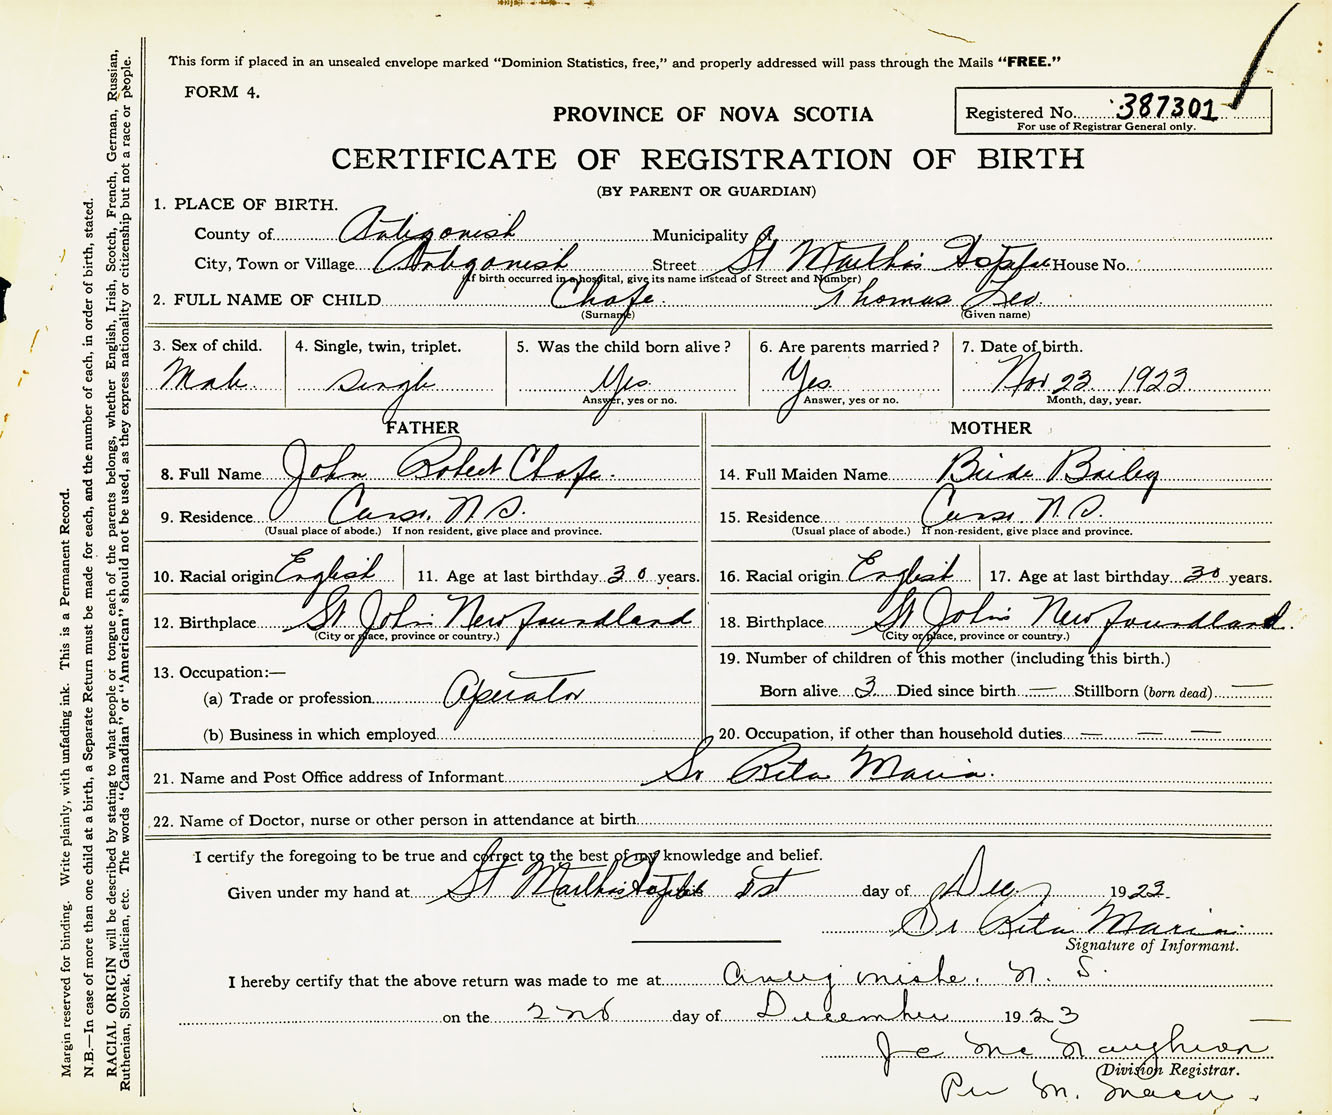 This form if placed in an unsealed envelope marked "Dominion Statistics, free," and properly addressed will pass through the Mails "FREE."
FORM 4.
PROVINCE OF NOVA SCOTIA
Registered No. 387301
For use of Registrar General only.
CERTIFICATE OF REGISTRATION OF BIRTH
(BY PARENT OR GUARDIAN)
1. PLACE OF BIRTH.
County of Antigonish Municipality
City, Town or Village Antigonish Street St Martha's House No.
(If birth occurred in a hospital, give its name instead of Street and Number)
2. FULL NAME OF CHILD Chafe Thomas Leo.
(Surname) (Given name)
3. Sex of child. 4. Single, twin, triplet. 5. Was the child born alive? 6. Are parents married? 7. Date of birth.
Male single Yes. Yes. Nov 23 1923
Answer, yes or no. Answer, yes or no. Month, day, year.
FATHER MOTHER
8. Full Name John Robert Chafe. 14. Full Maiden Name Bride Bailey
9. Residence Canso, N.S. 15. Residence Canso N.S.
(Usual place of abode.) If non resident, give place and province. (Usual place of abode.) If non-resident, give place and province.
10. Racial origin English 11. Age at last birthday 30 years. 16. Racial origin English 17. Age at last birthday 30 years.
12. Birthplace St John's Newfoundland 18. Birthplace St John's Newfoundland.
(City or place, province or country.) (City or place, province or country.)
13. Occupation:— 19. Number of children of this mother (including this birth.)
(a) Trade or profession Operator Born alive 3 Died since birth — Stillborn (born dead) —
(b) Business in which employed 20. Occupation, if other than household duties — — —
21. Name and Post Office address of Informant Sr Rita Maria.
22. Name of Doctor, nurse or other person in attendance at birth
I certify the foregoing to be true and correct to the best of my knowledge and belief.
Given under my hand at St Martha's 1st day of Dec. 1923
Sr Rita Maria.
Signature of Informant.
I hereby certify that the above return was made to me at Antigonish. N. S.
on the 2nd day of December 1923
Division Registrar.
Per M.
Margin reserved for binding. Write plainly, with unfading ink. This is a Permanent Record.
N.B.—In case of more than one child at a birth, a Separate Return must be made for each, and the number of each, in order of birth, stated.
RACIAL ORIGIN will be described by stating to what people or tongue each of the parents belongs, whether English, Irish, Scotch, French, German, Russian,
Ruthenian, Slovak, Galician, etc. The words "Canadian" or "American" should not be used, as they express nationality or citizenship but not a race or people.